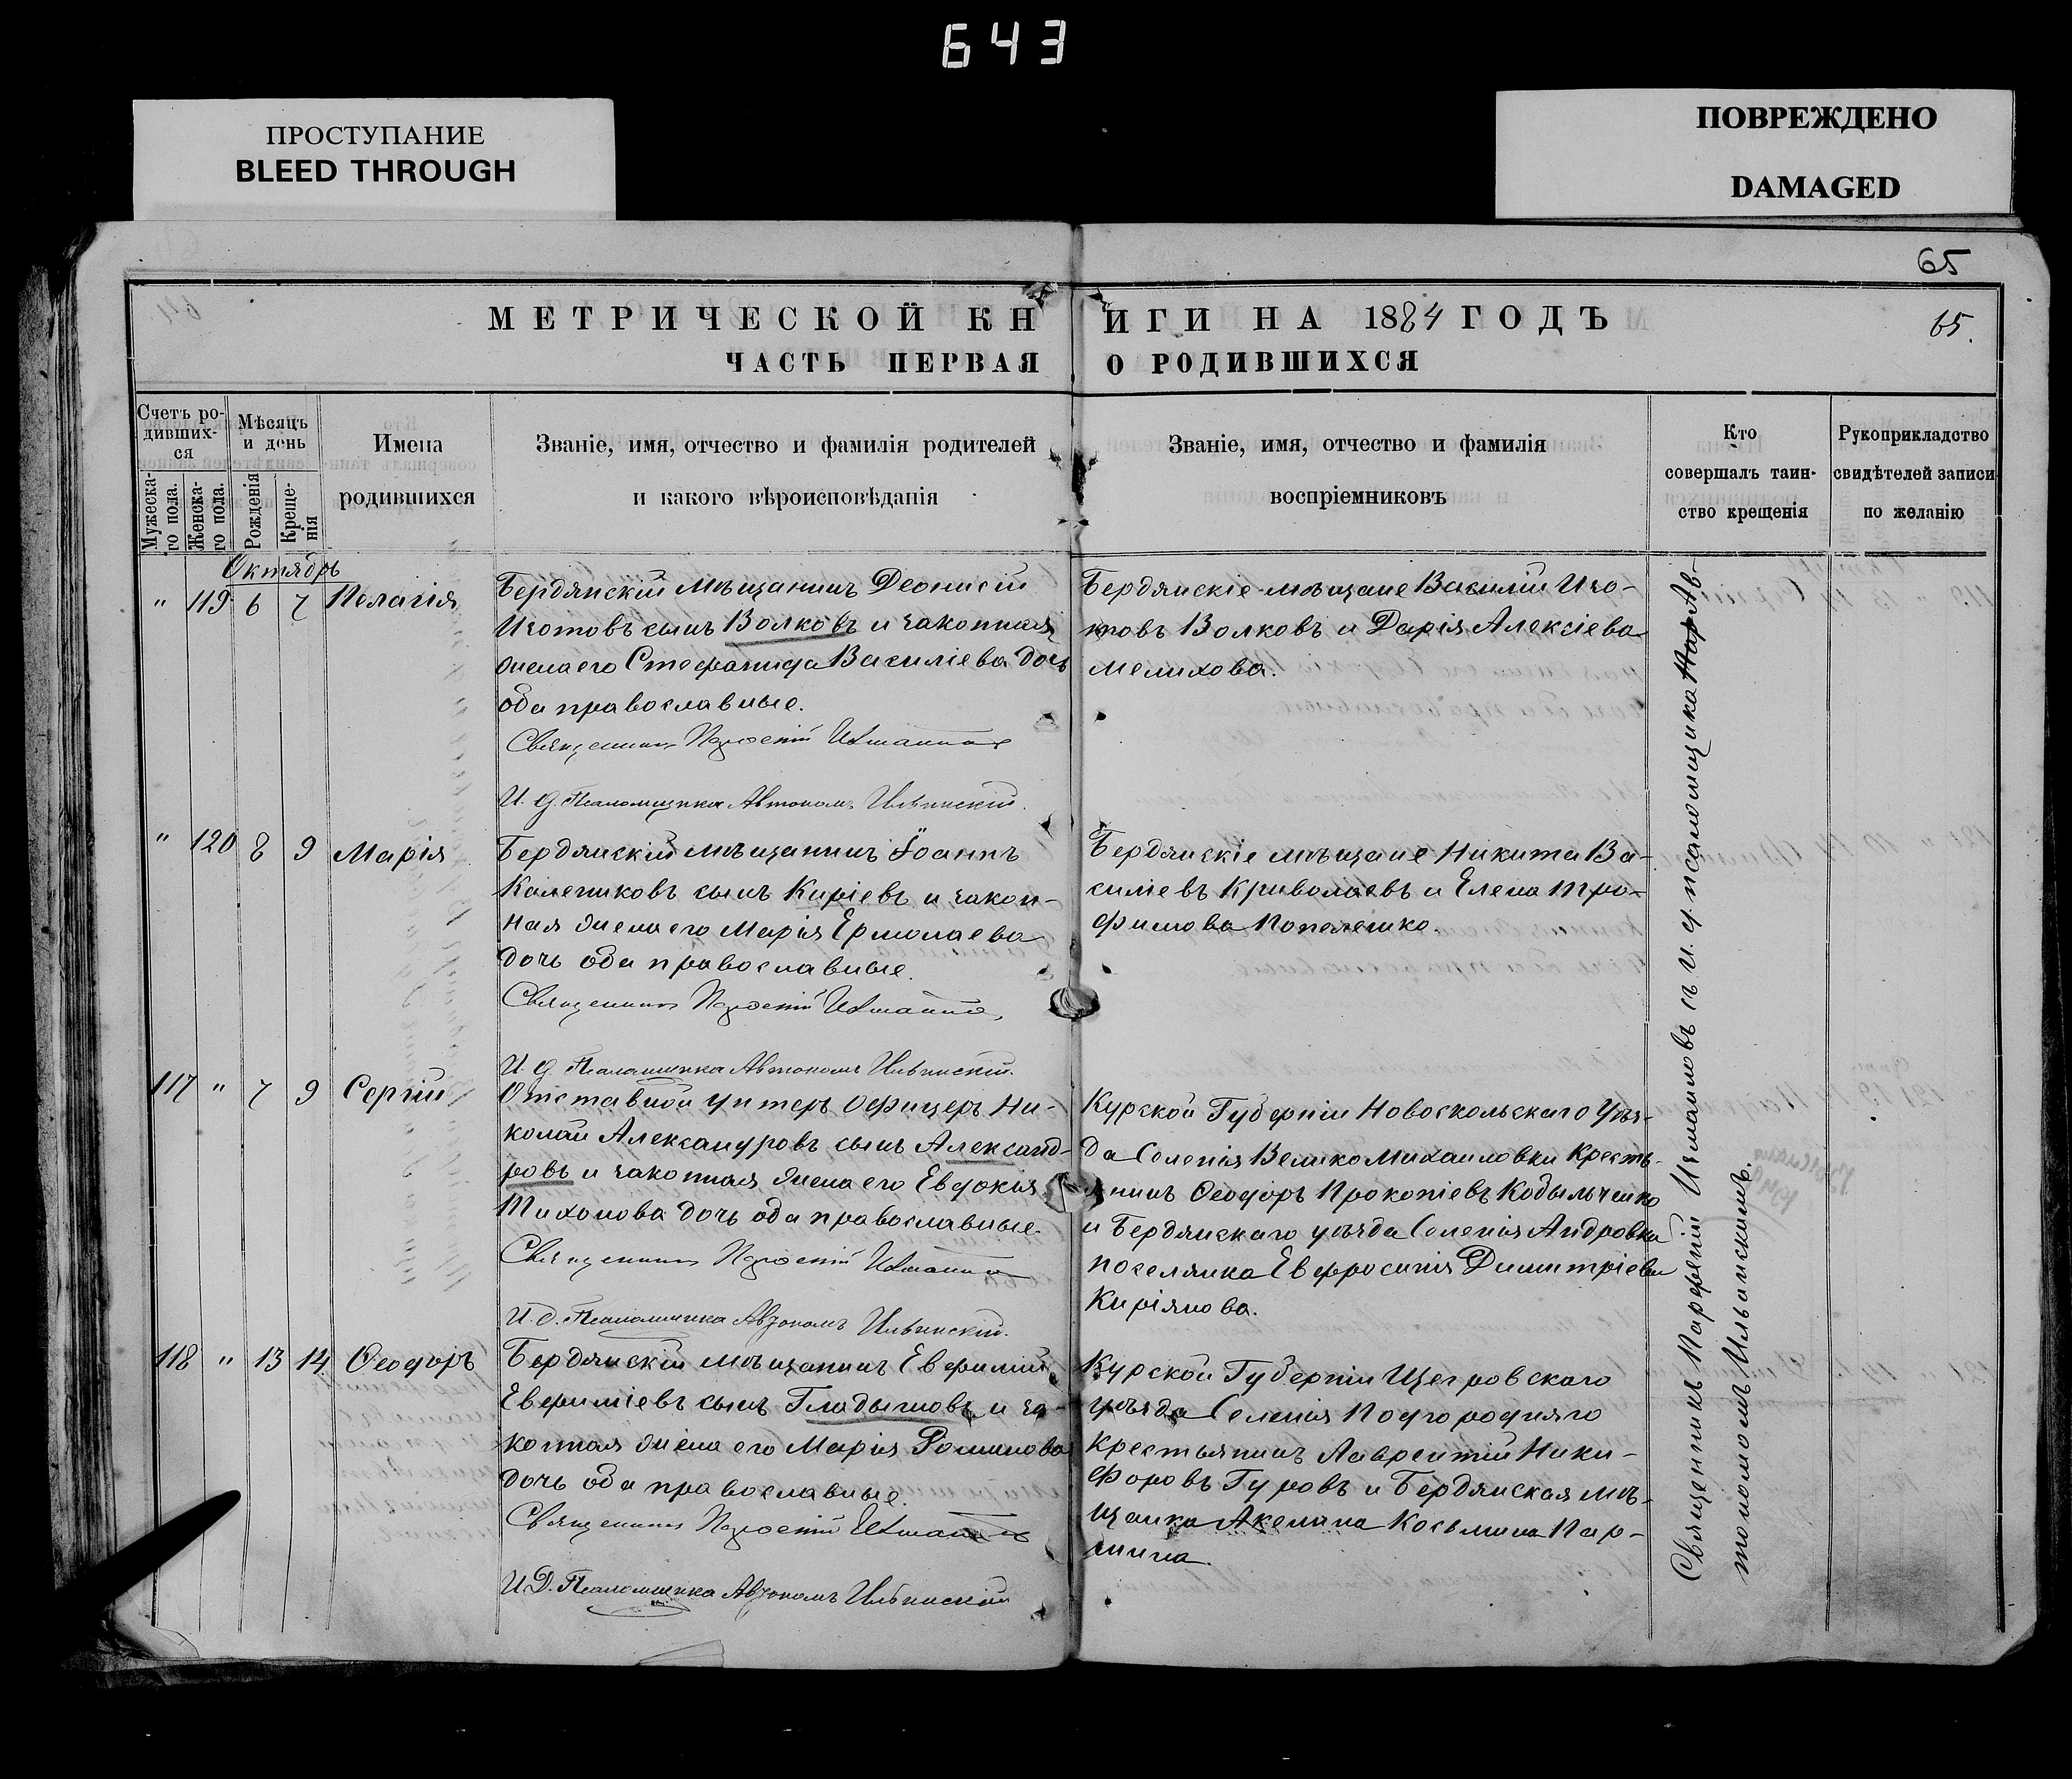 643
ПРОСТУПАНИЕ
BLEED THROUGH
ПОВРЕЖДЕНО
DAMAGED
65
МЕТРИЧЕСКОЙ КНИГИ НА 1884 ГОДЪ
65.
ЧАСТЬ ПЕРВАЯ О РОДИВШИХСЯ
Счетъ ро-
дивших-
ся
Мужеска-
го пола.
Женска-
го пола.
Мѣсяцъ
и день
Рожденія
Креще-
нія
Имена
родившихся
Званіе, имя, отчество и фамилія родителей
и какого вѣроисповѣданія
Званіе, имя, отчество и фамилія
воспріемниковъ
Кто
совершалъ таин-
ство крещенія
Рукоприкладство
свидѣтелей записи
по желанію
Октябрь
" 119 6 7 Пелагія
Бердянскій мѣщанинъ Деонисій
Изотовъ сынъ Волковъ и законная
жена его Стефанида Василіева дочь
оба православные.
Священникъ Парѳеній
И. д. Псаломщика Автономъ Ильинскій.
Бердянскіе мѣщане Василій Изо-
товъ Волковъ и Дарія Алексіева
Мелихова.
" 120 8 9 Марія
Бердянскій мѣщанинъ Іоаннъ
Калениковъ сынъ Киріевъ и закон-
ная жена его Марія Ермолаева
дочь оба православные.
Священникъ Парѳеній
И. д. Псаломщика Автономъ Ильинскій.
Бердянскіе мѣщане Никита Ва-
силіевъ Криволаевъ и Елена Тро-
фимова
117 " 7 9 Сергій
Отставной унтеръ офицеръ Ни-
колай Александровъ сынъ Александ-
ровъ и законная жена его Евдокія
Тихонова дочь оба православные.
Священникъ Парѳеній
И. д. Псаломщика Автономъ Ильинскій.
Курской Губерніи Новоскольскаго Уѣз-
да Селенія Велико Михайловки Кресть-
янинъ Ѳеодоръ Прокопіевъ Кобыльченко
и Бердянскаго уѣзда Селенія Андровки
поселянка Евфросинія Димитріева
Киріянова.
118 " 13 14 Ѳеодоръ
Бердянскій мѣщанинъ Евфимій
Евфиміевъ сынъ Гладышовъ и за-
конная жена его Марія Романова
дочь оба православные.
Священникъ Парѳеній
И. Д. Псаломщика Автономъ Ильинскій
Курской Губерніи Щегровскаго
уѣзда Селенія Подгородняго
крестьянинъ Лаврентій Ники-
форовъ Гуровъ и Бердянская мѣ-
щанка Акелина Косьмина Пар-
шина.
Священникъ Парѳеній съ и. д. псаломщика Ав-
тономомъ Ильинскимъ.